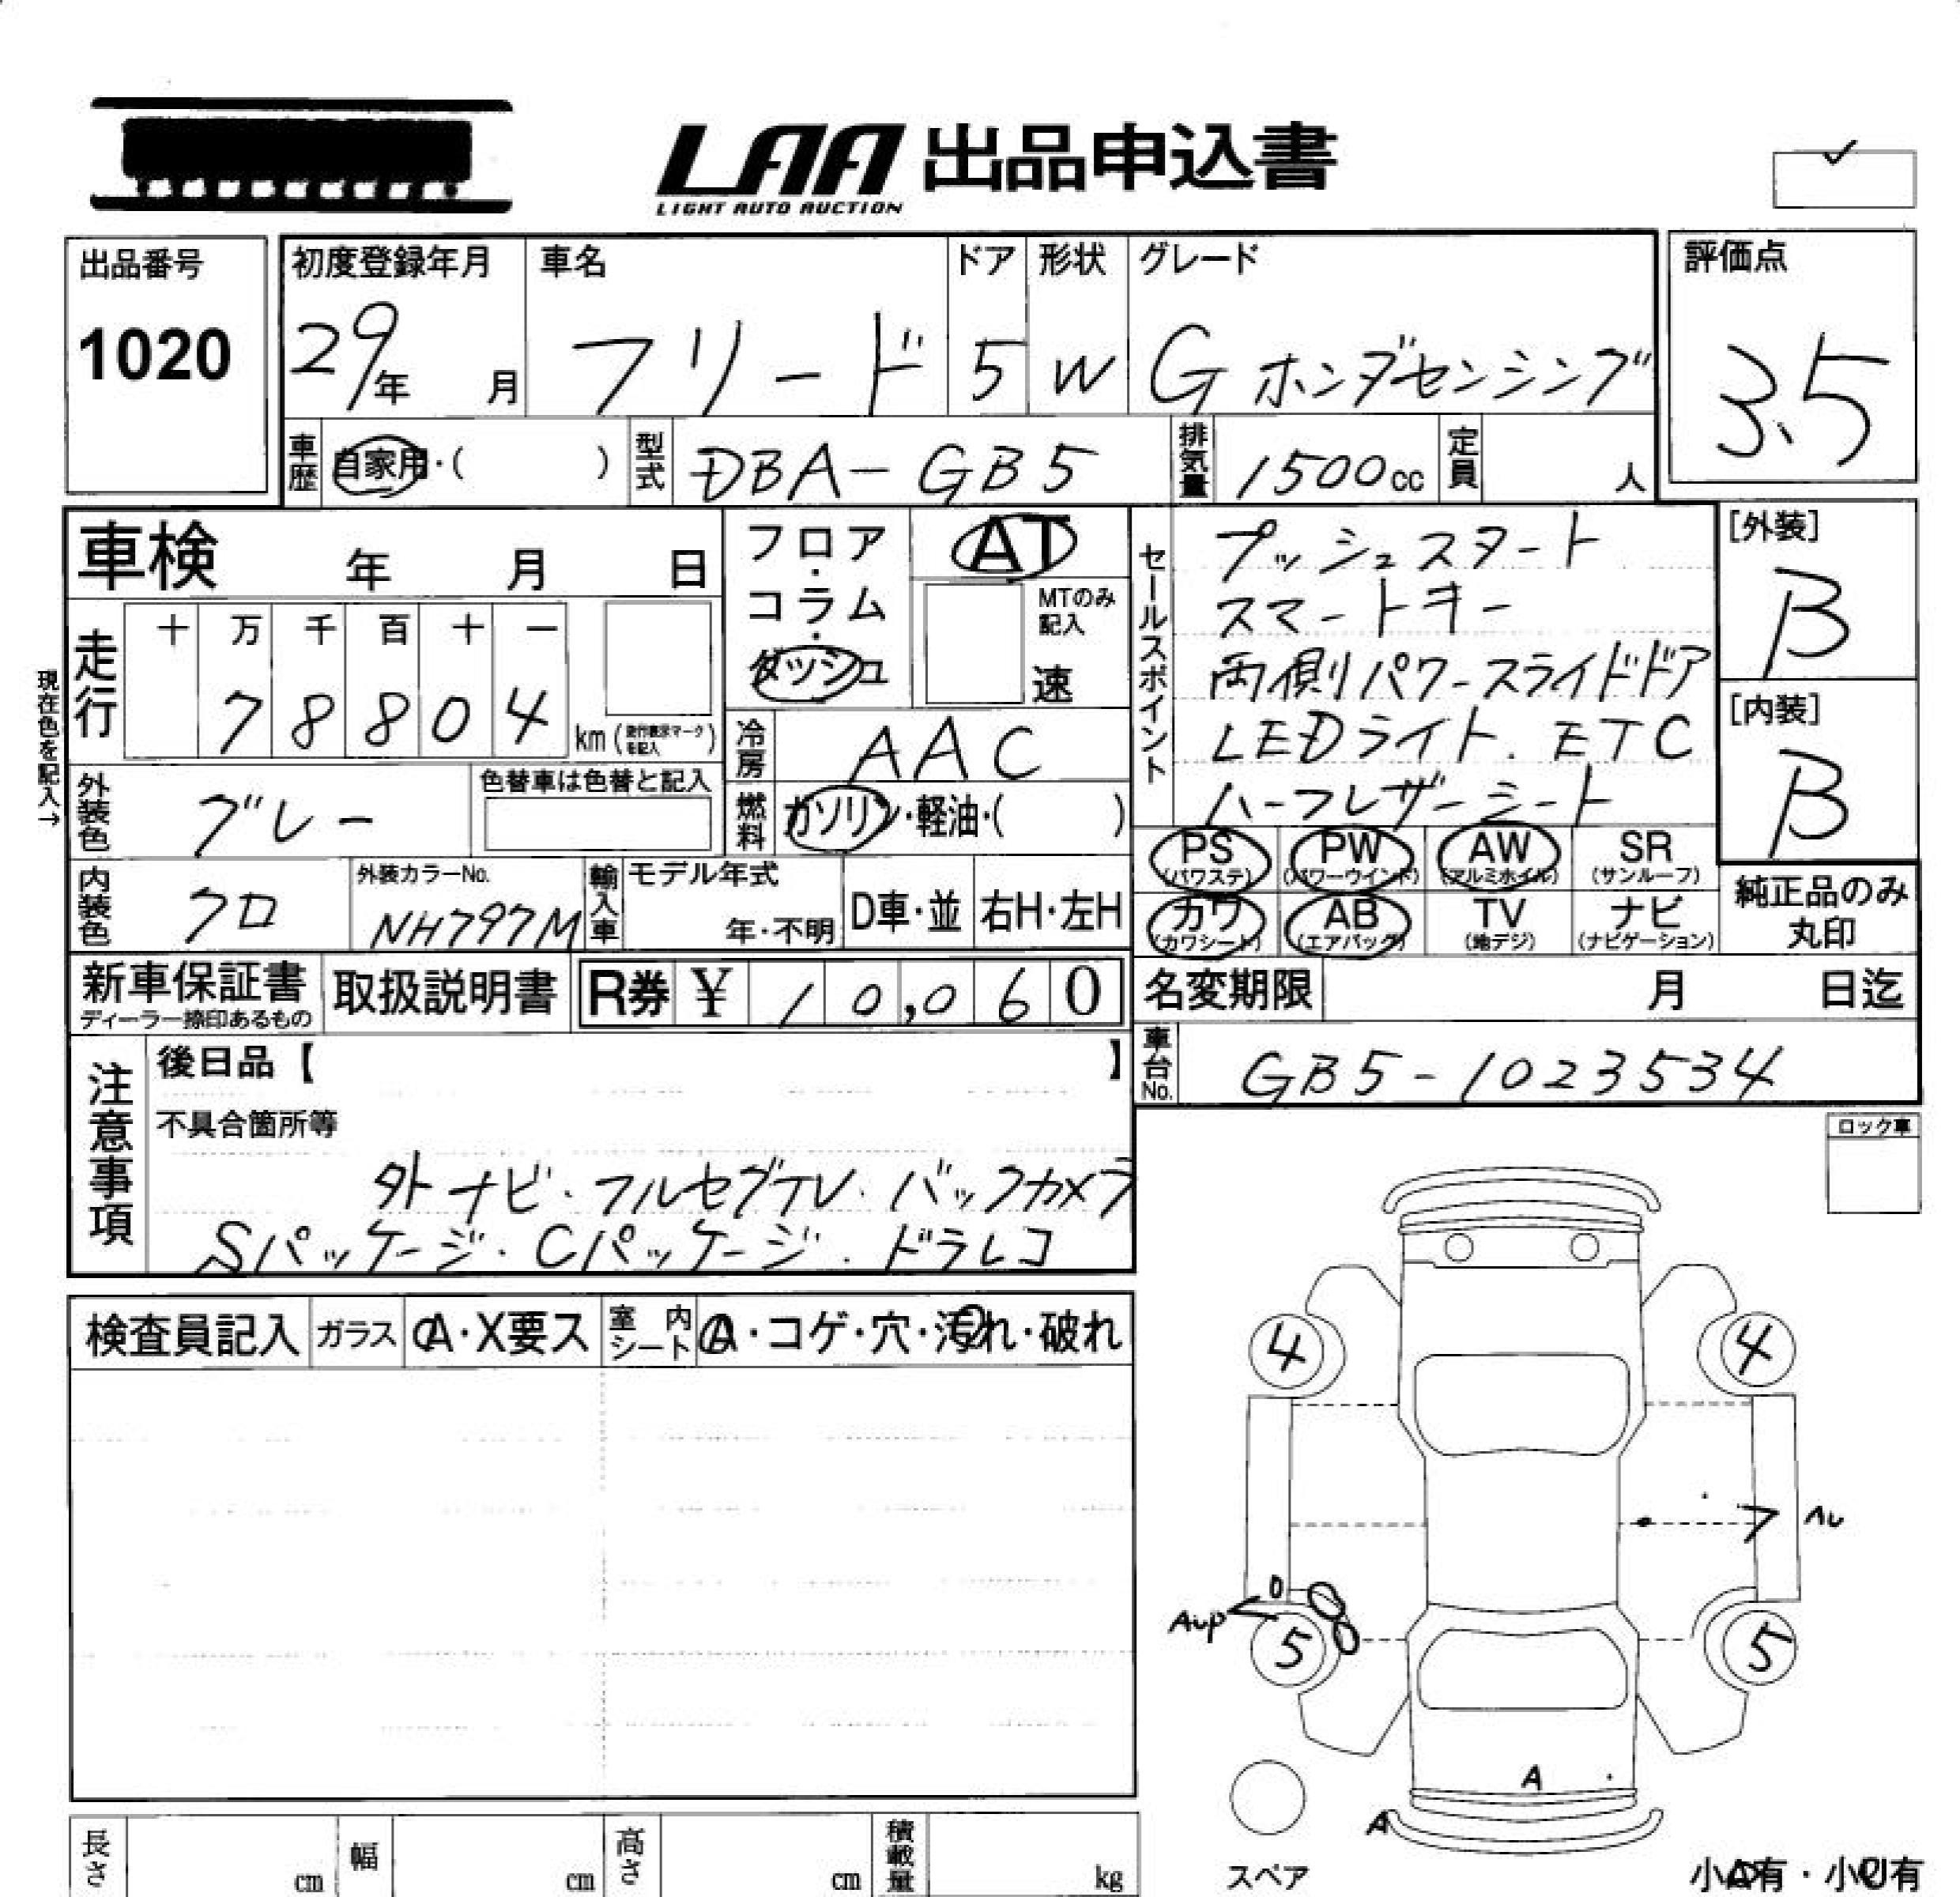 LAA 出品申込書
LIGHT AUTO AUCTION
出品番号
1020
初度登録年月
29年 月
車名
フリード
ドア
5
形状
W
グレード
G ホンダセンシング
評価点
3.5
車歴 自家用・( )
型式 DBA-GB5
排気量 1500cc
定員 人
車検 年 月 日
フロア・コラム・ダッシュ
AT
MTのみ記入
速
セールスポイント
プッシュスタート
スマートキー
両側パワースライドドア
LEDライト. ETC
ハーフレザーシート
[外装]
B
[内装]
B
現在色を記入→
走行
十 万 千 百 十 一
7 8 8 0 4
km (走行表示マークを記入)
冷房 AAC
外装色 グレー
色替車は色替と記入
燃料 ガソリン・軽油・( )
内装色 クロ
外装カラーNo.
NH797M
輸入車
モデル年式
年・不明
D車・並
右H・左H
PS (パワステ)
PW (パワーウインド)
AW (アルミホイル)
SR (サンルーフ)
カワ (カワシート)
AB (エアバッグ)
TV (地デジ)
ナビ (ナビゲーション)
純正品のみ
丸印
新車保証書
ディーラー捺印あるもの
取扱説明書
R券 ¥ 10,060
名変期限 月 日迄
車台No. GB5-1023534
注意事項
後日品【 】
不具合箇所等
外ナビ・フルセグTV・バックカメラ
Sパッケージ・Cパッケージ・ドラレコ
ロック車
検査員記入
ガラス
A・X要ス
室内シート
A・コゲ・穴・汚れ・破れ
4 4
7 ヘレ
Aup
5 5
A
A
スペア
長さ cm
幅 cm
高さ cm
積載量 kg
小A有・小U有